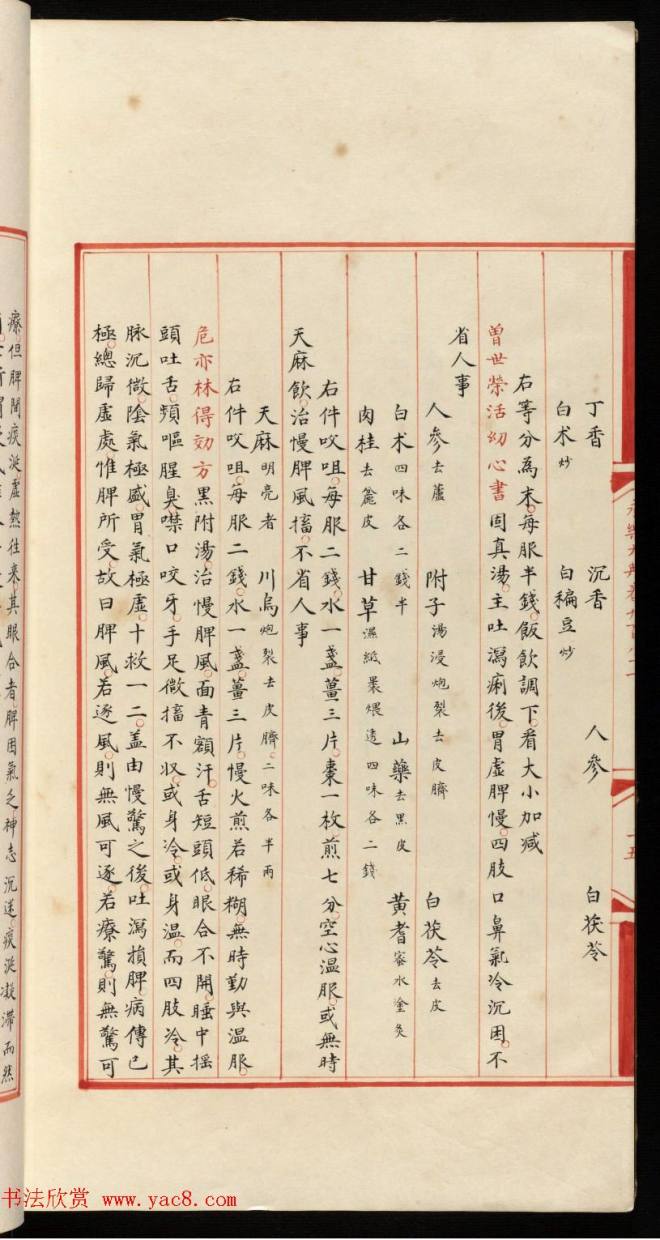 丁香 沉香 人參 白茯苓
白朮炒 白稨豆炒
右等分為末每服半錢飯飲調下看大小加减
曾世榮活幼心書固真湯主吐瀉痢後胃虛脾慢四肢口鼻氣冷沉困不
省人事
人參去蘆 附子湯浸炮裂去皮臍 白茯苓去皮
白朮四味各二錢半 山藥去黑皮 黃耆蜜水塗炙
肉桂去麄皮 甘草濕紙裹煨透四味各二錢
右件㕮咀每服二錢水一盞薑三片棗一枚煎七分空心溫服或無時
天麻飲治慢脾風搐不省人事
天麻明亮者 川烏炮裂去皮臍二味各半兩
右件㕮咀每服二錢水一盞薑三片慢火煎若稀糊無時勤與溫服
危亦林得効方黑附湯治慢脾風面青額汗舌短頭低眼合不開睡中搖
頭吐舌頻嘔腥臭噤口咬牙手足微搐不收或身冷或身溫而四肢冷其
脉沉微陰氣極盛胃氣極虛十救一二盖由慢驚之後吐瀉損脾病傳已
極總歸虛處惟脾所受故曰脾風若逐風則無風可逐若療驚則無驚可
療但脾間痰涎虛熱往來其眼合者脾困氣乏神志沉迷痰涎凝滯而然
书法欣赏 www.yac8.com